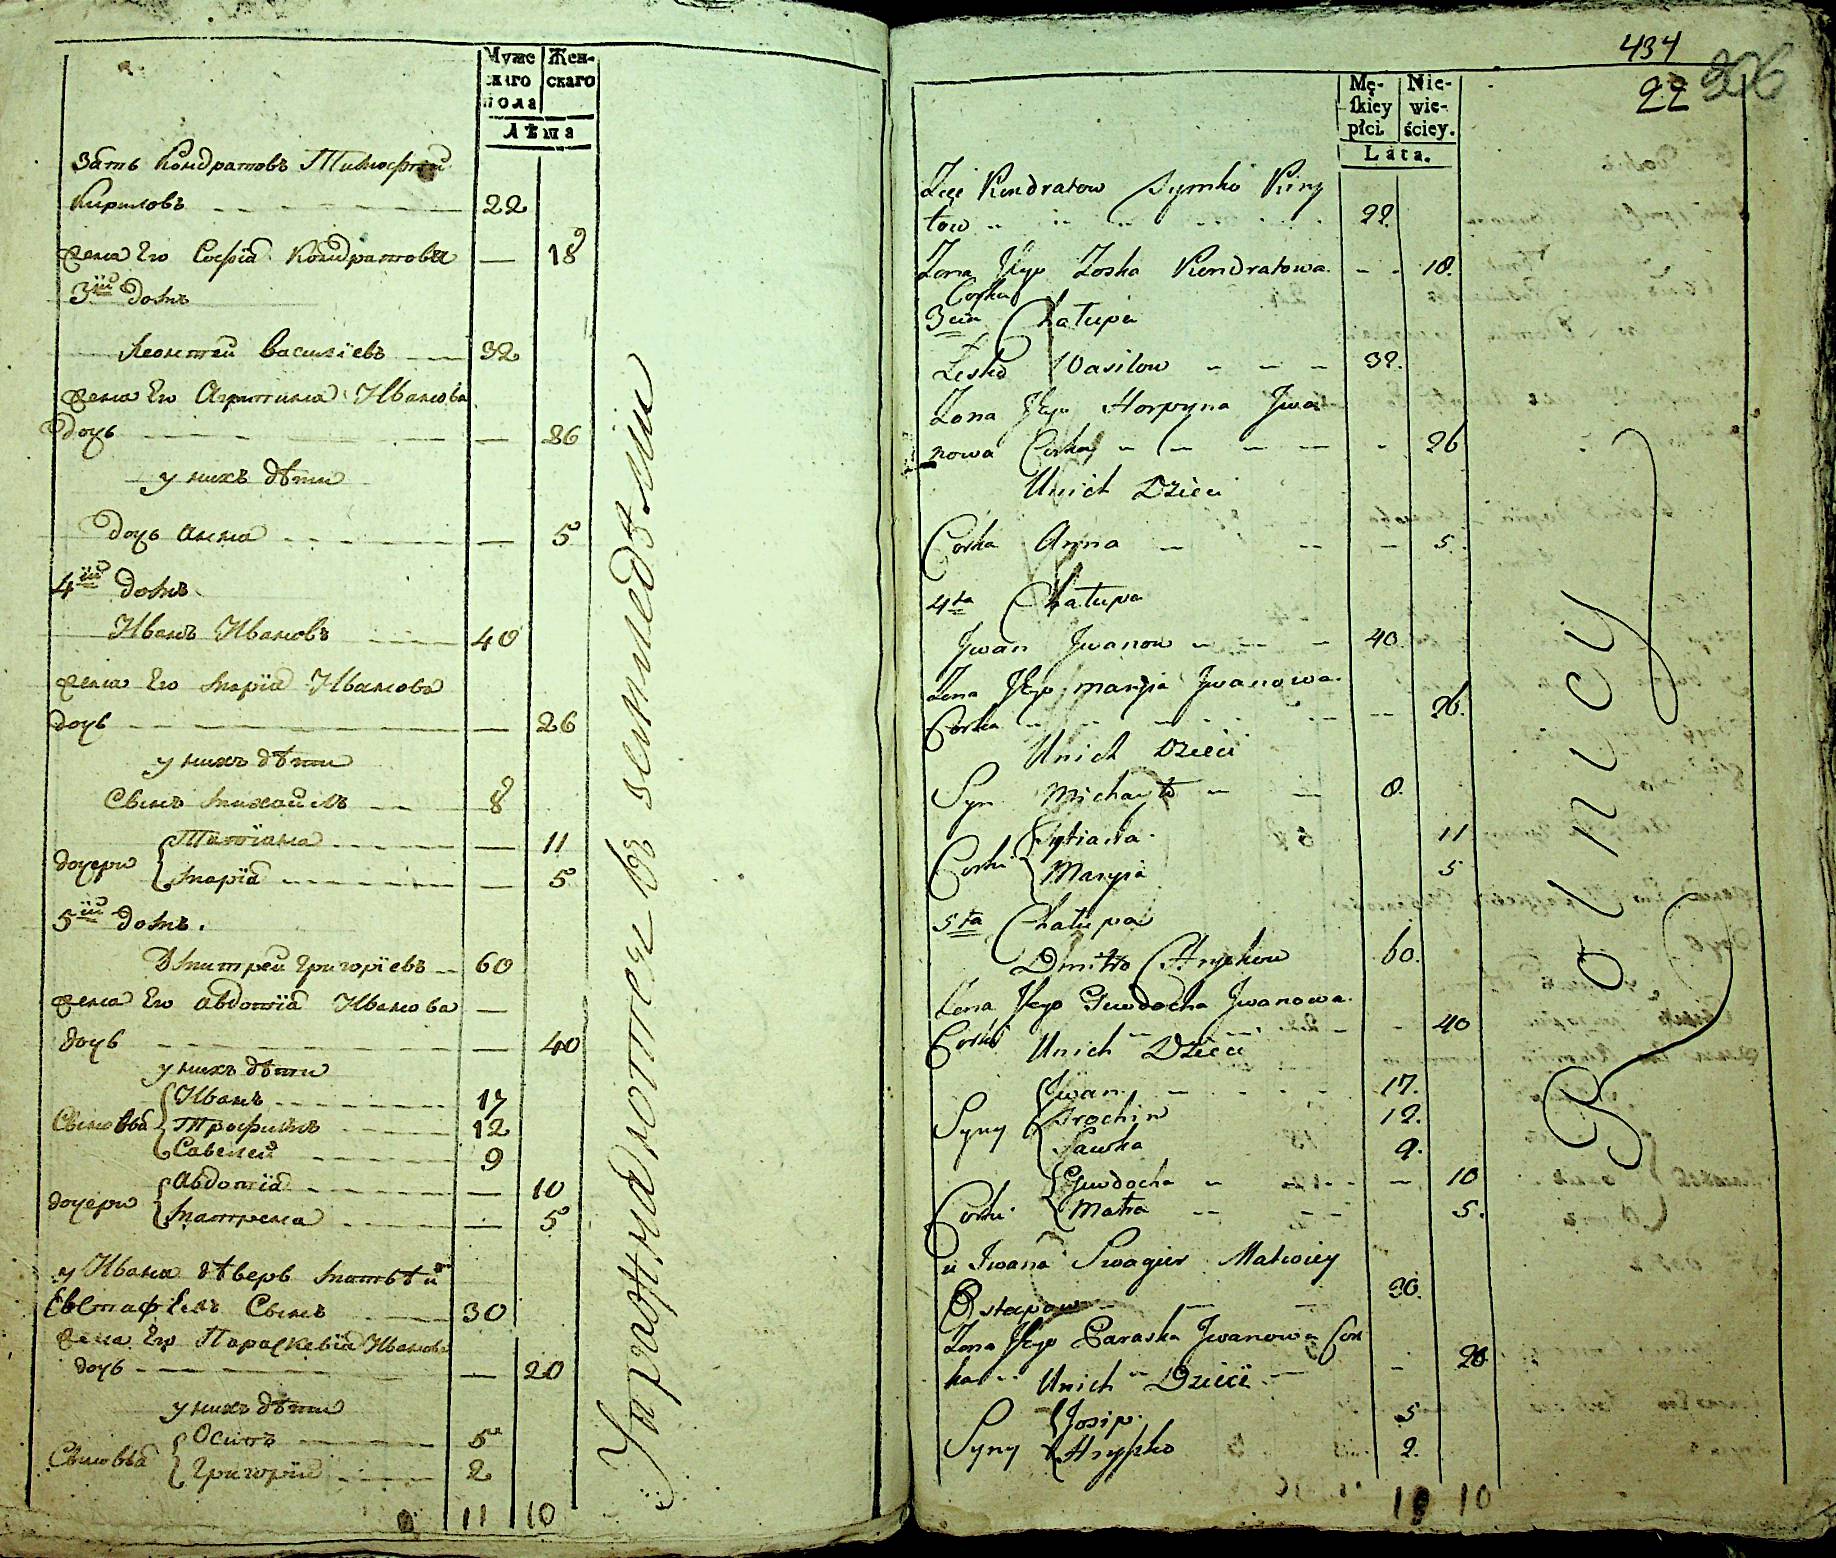 Муже
скаго
пола
Жен-
скаго
Лѣта
Зять Кондратовъ Тимофей
Кириловъ 22
жена Его Софїа Кондратова 18
3ій домъ
Леонтей Василїевъ 32
жена Его Агрипина Иванова
дочь 26
у нихъ дѣти
дочь Анна 5
4ій домъ
Иванъ Ивановъ 40
жена Его Марїа Иванова
дочь 26
у нихъ дѣти
Сынъ Михаилъ 8
дочери Татїана 11
Марїа 5
5ій домъ.
Дмитрей Григорїевъ 60
жена Его Авдотїа Иванова
дочь 40
у нихъ дѣти
Сыновья Иванъ 17
Трофимъ 12
Савелей 9
дочери Авдотїа 10
Матрена 5
у Ивана дѣверь Матвѣй
Сынъ 30
жена Его Параскевїа Иванова
дочь 20
у нихъ дѣти
Сыновья Осипъ 5
Григорїй 2
11 10
Упражняютея въ земледѣлии
434
22 206
Mę-
skiey
płci.
Nie-
wie-
ściey.
Lata.
Zięć Kondratow Symko Kiry
łow 22.
Zona Jego Zoska Kondratowa 18.
Corka
3cia Chałupa
Lesko Wasilow 32.
Zona Jego Horpyna Jwa
nowa Corka 26
Unich Dzieci
Corka Anna 5.
4ta Chałupa
Jwan Jwanow 40.
Zona Jego Maryia Jwanowa
Corka 26.
Unich Dzieci
Syn Michayło 8.
Corki Tytianna 11
Maryia 5
5ta Chałupa
Dmitro Hryhow 60.
Zona Jego Jewdocha Jwanowa
Corka 40
Unich Dzieci
Syny Jwan 17.
Trochim 12.
Sawka 9.
Corki Jewdocha 10
Matra 5.
u Jwana Swagier Matwiey
Ostapow 30.
Zona Jego Paraska Jwanowa Cor
ka 20
Unich Dzieci
Syny Josip 5
Hryhko 2.
10
Rolnicy